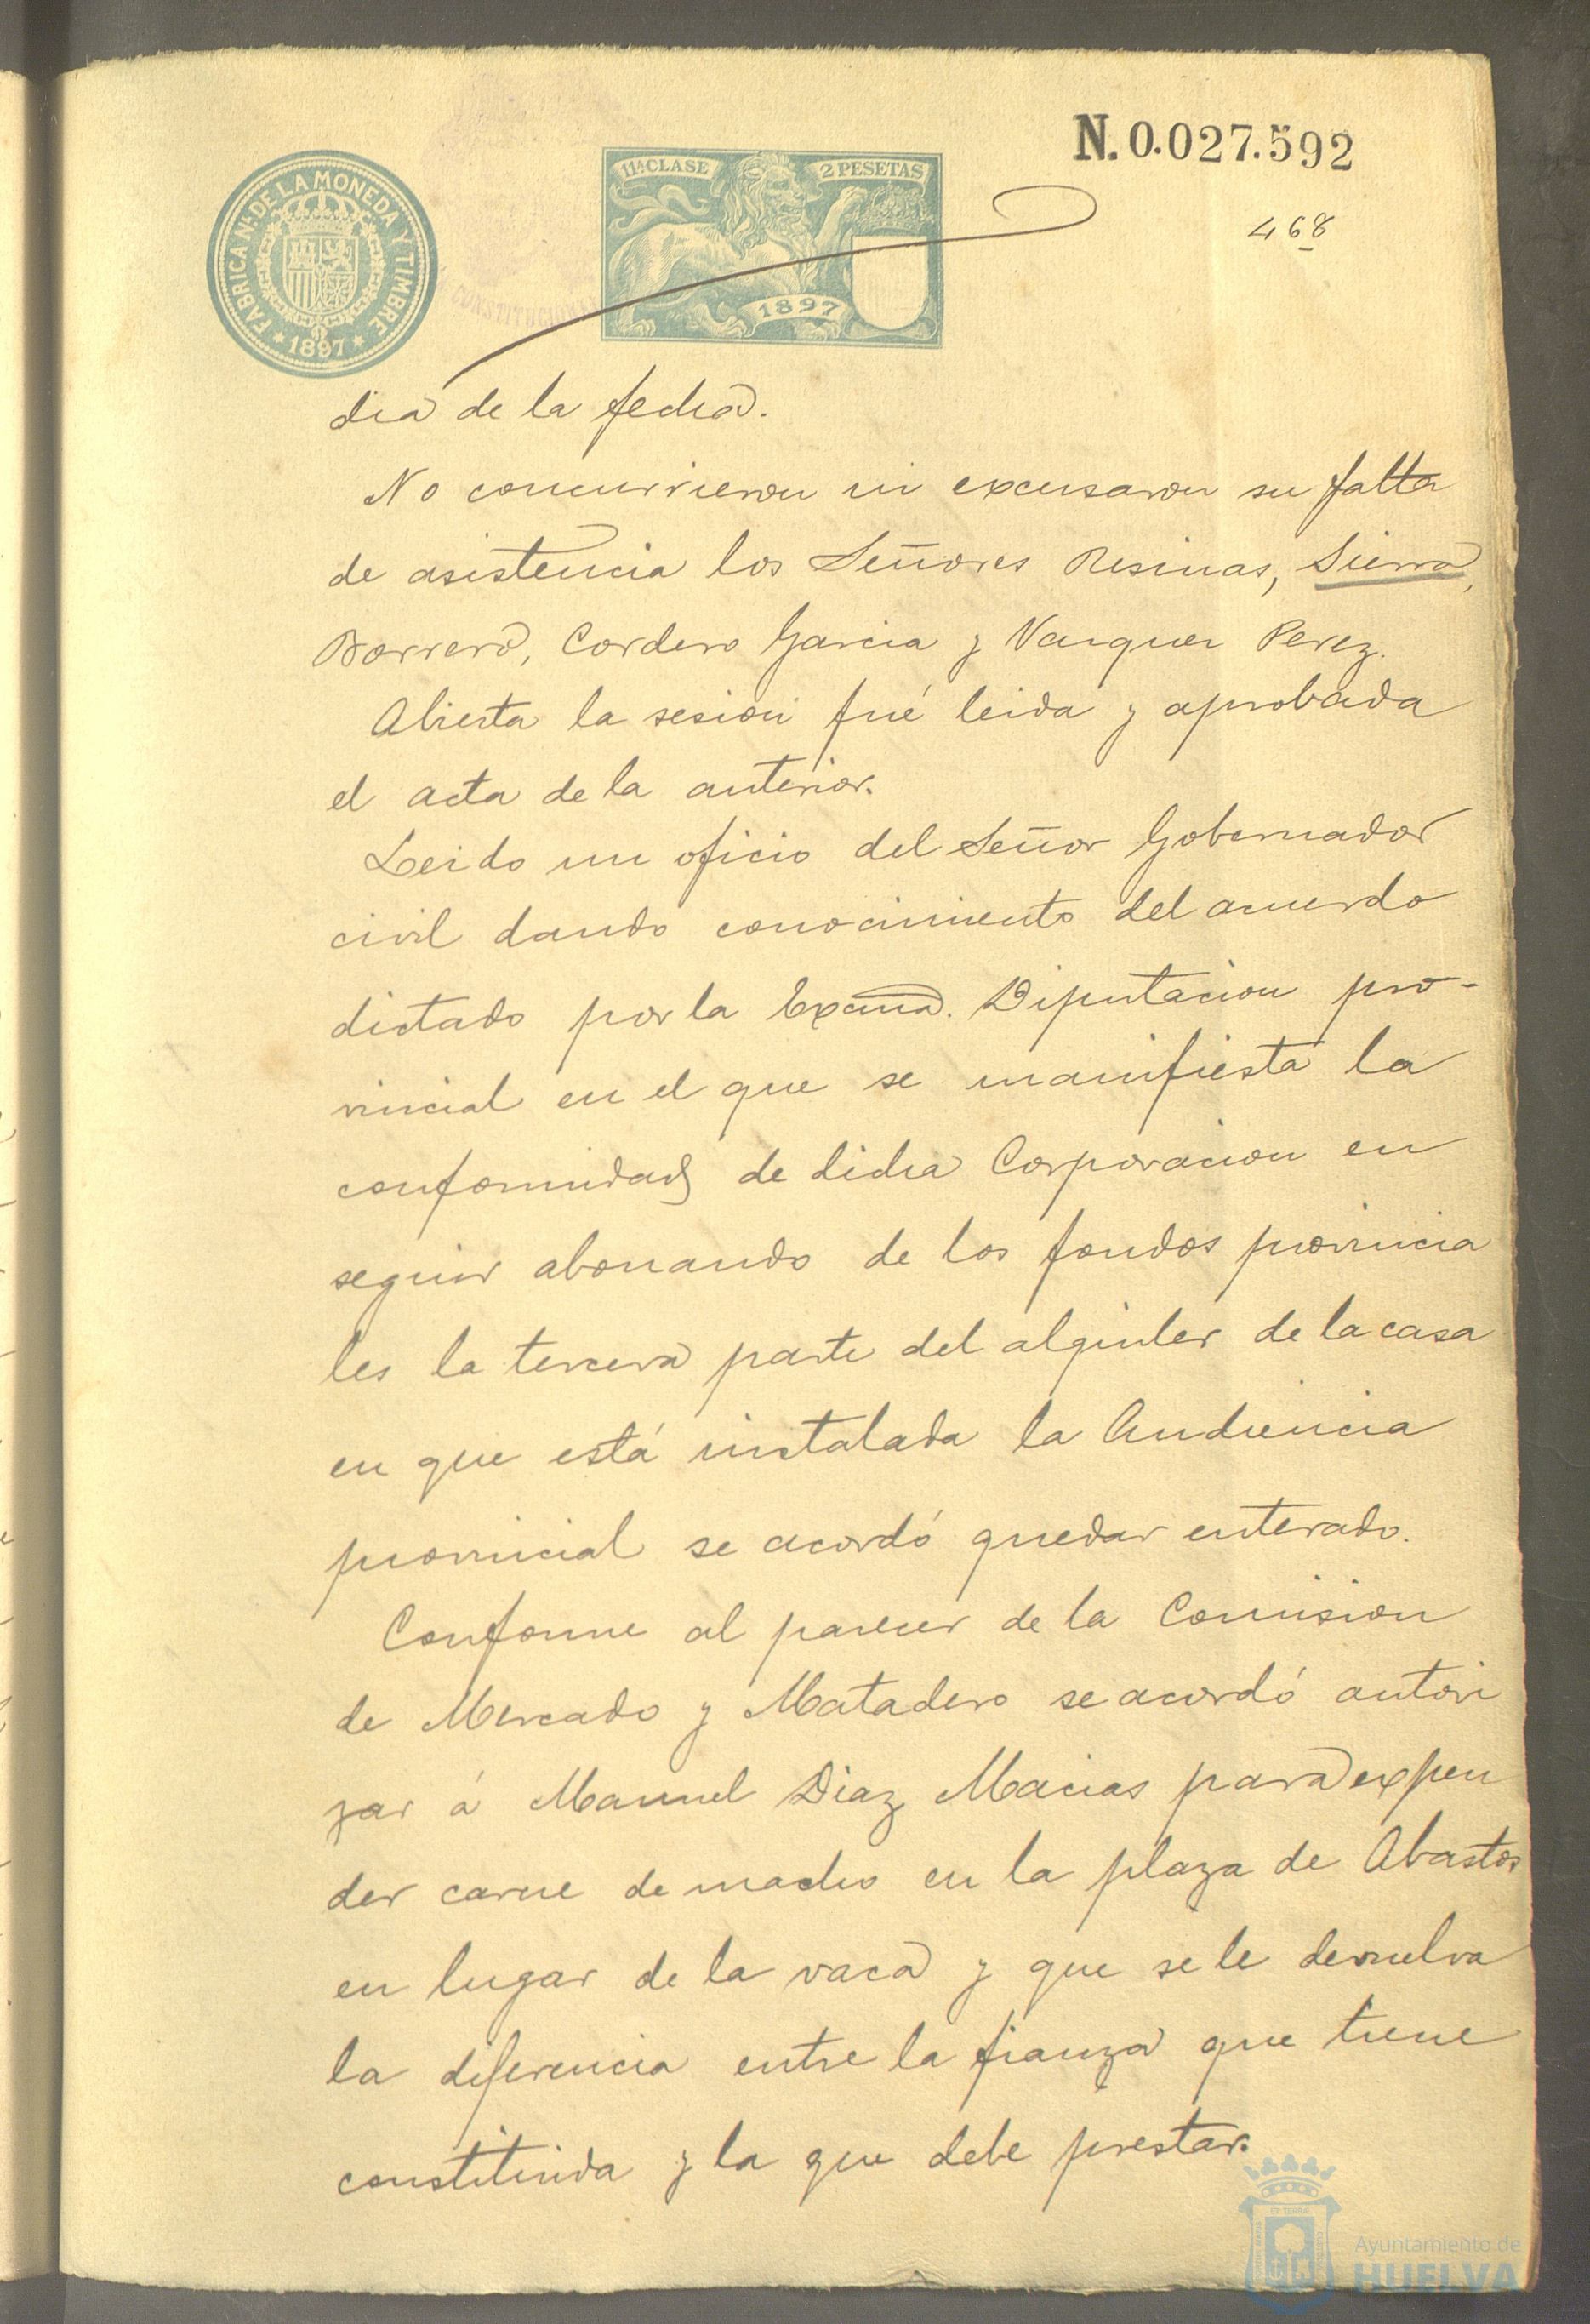 N. 0.027.592
468
FABRICA Nal. DE LA MONEDA Y TIMBRE
* 1897 *
11ª CLASE
2 PESETAS
1897
CONSTITUCIONAL
dia de la fecha.
No concurrieron ni excusaron su falta
de asistencia los Señores Resinas, Sierra,
Borrero, Cordero Garcia y Vazquez Perez.
Abierta la sesion fué leida y aprobada
el acta de la anterior.
Leido un oficio del Señor Gobernador
civil dando conocimiento del acuerdo
dictado por la Excma. Diputacion pro-
vincial en el que se manifiesta la
conformidad de dicha Corporacion en
seguir abonando de los fondos provincia
les la tercera parte del alquiler de la casa
en que está instalada la Audiencia
provincial se acordó quedar enterado.
Conforme al parecer de la Comision
de Mercado y Matadero se acordó autori
zar á Manuel Diaz Macias para expen
der carne de macho en la plaza de Abastos
en lugar de la vaca y que se le devuelva
la diferencia entre la fianza que tiene
constituida y la que debe prestar.
Ayuntamiento de
HUELVA